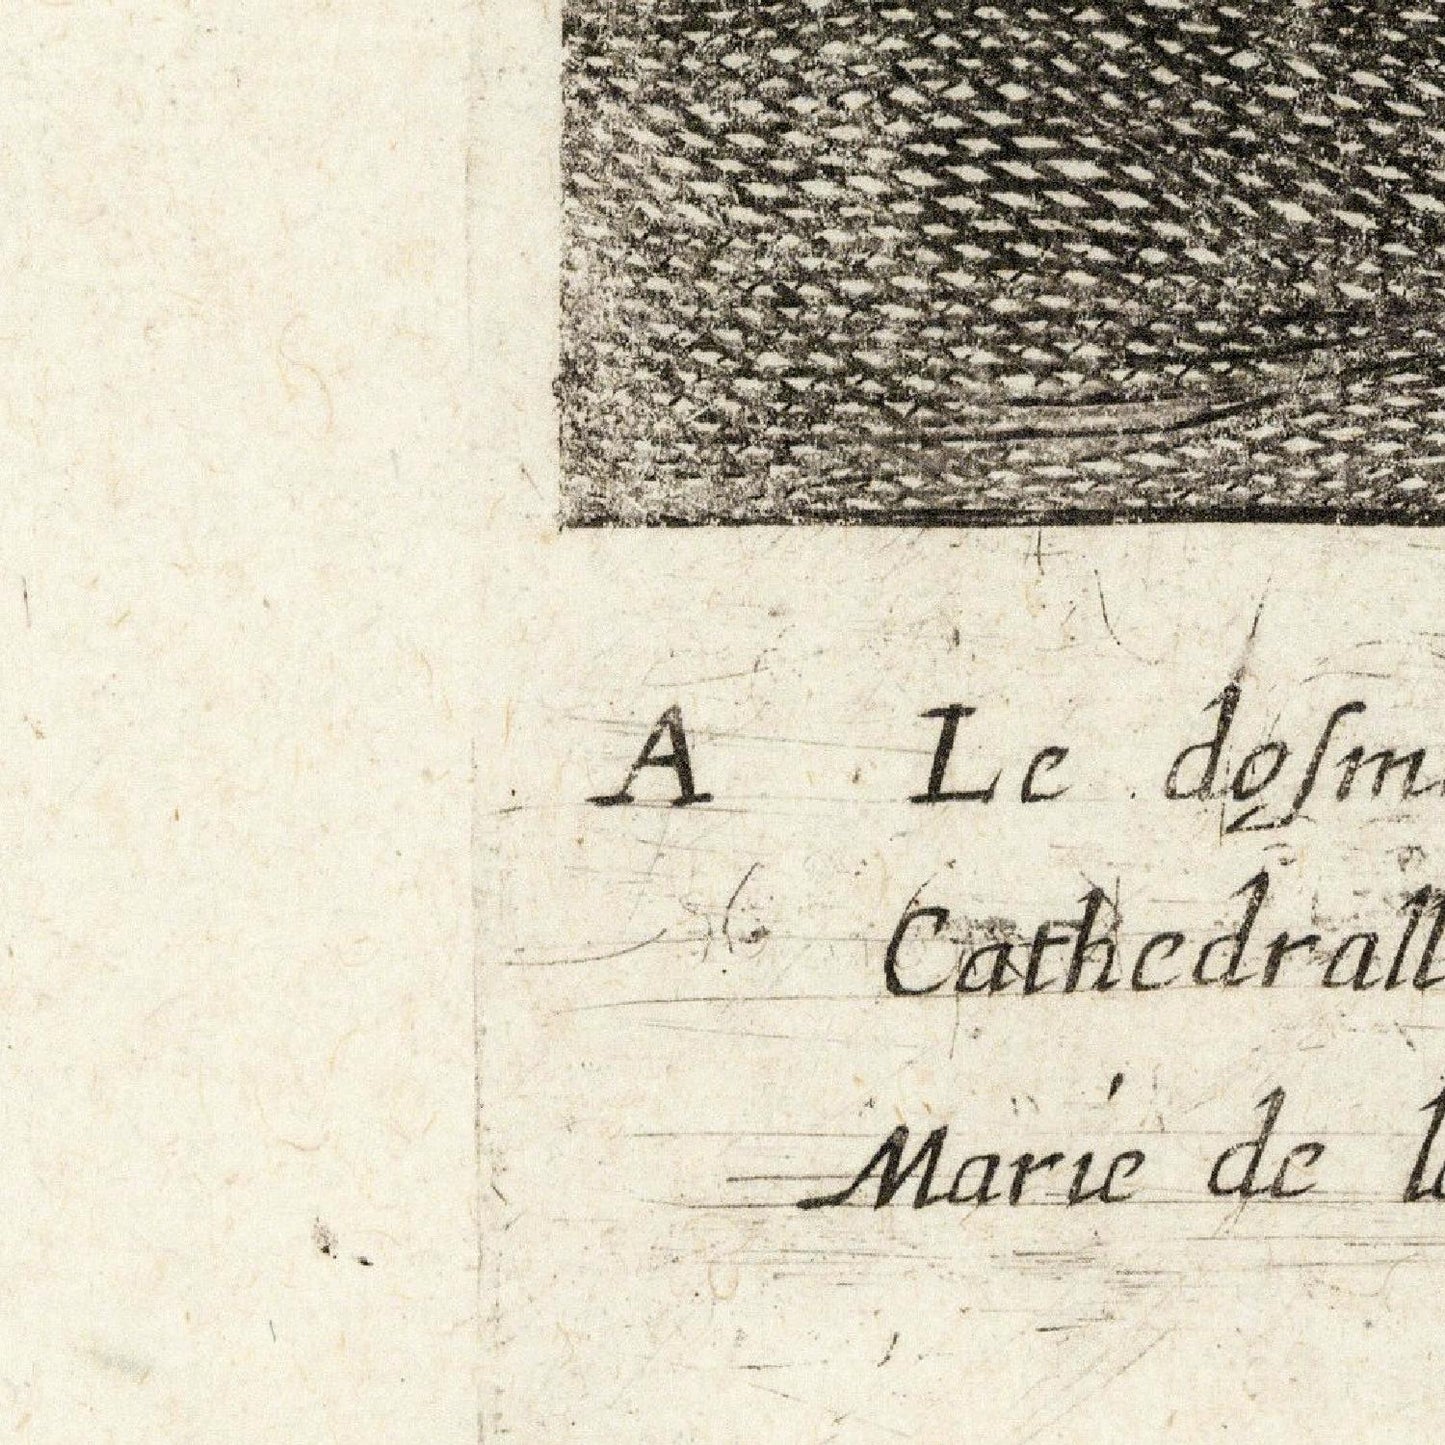 A Le doſm
Cathedrall
Marie de l